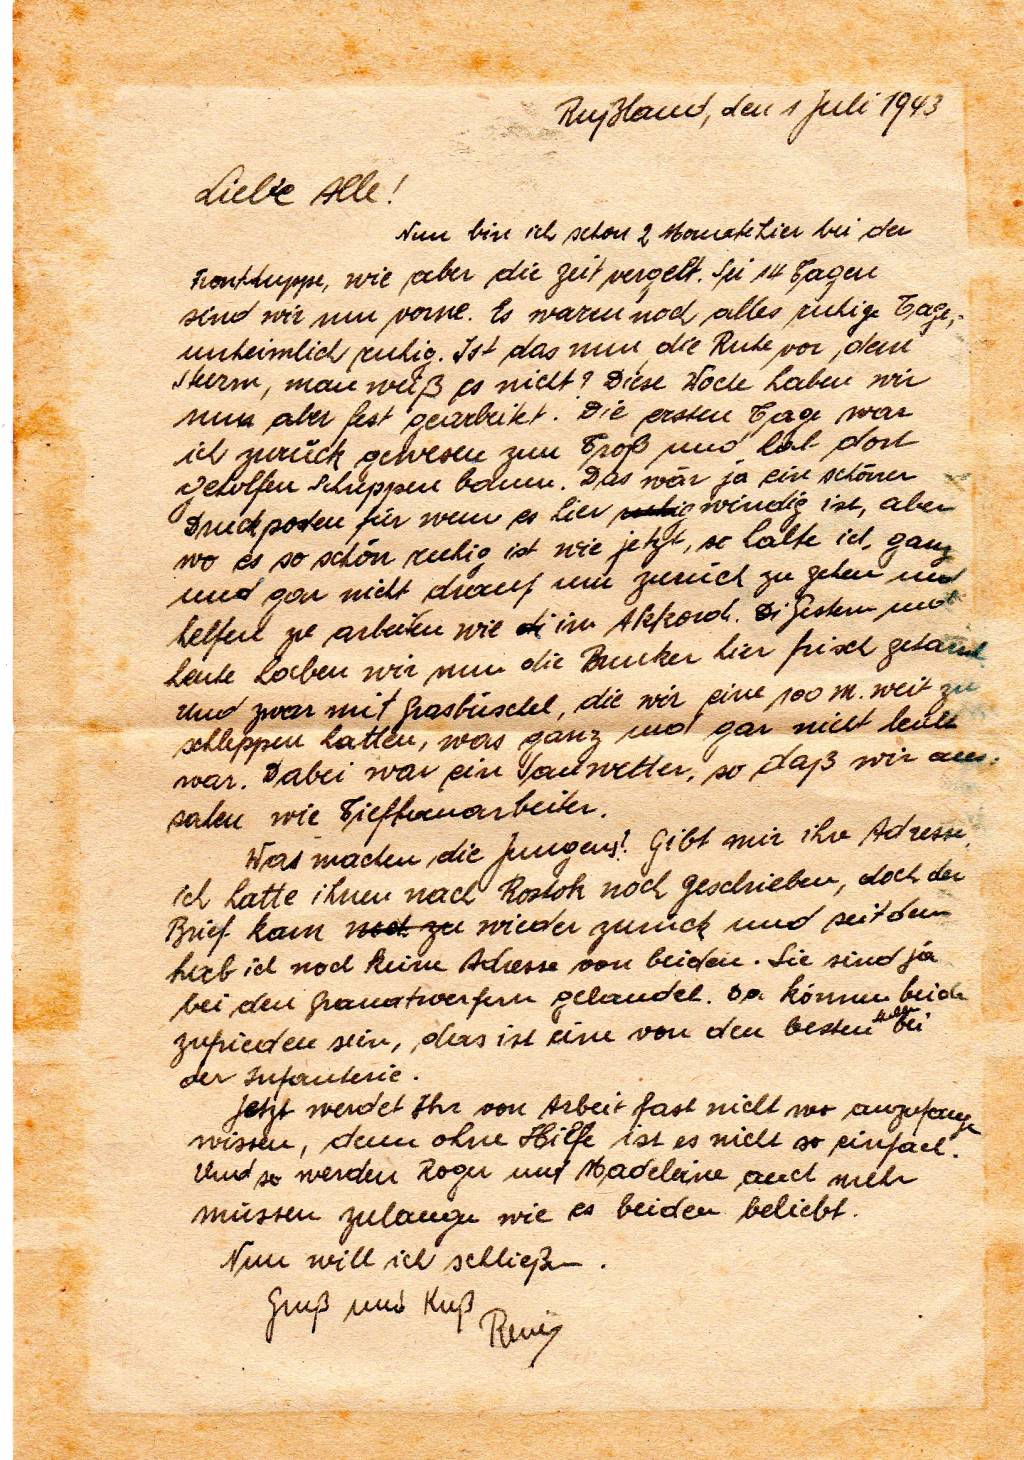 Rußland, den 1 Juli 1943
Liebe Alle!
Nun bin ich schon 2 Monate hier bei der
Fronttruppe, wie aber die Zeit vergeht. Sei 14 Tagen
sind wir nun vorne. Es waren noch alles ruhige Tage,
unheimlich ruhig. Ist das nun die Ruhe vor dem
Sturm, man weiß es nicht? Diese Woche haben wir
nun aber fest gearbeitet. Die ersten Tage war
ich zurück gewesen zum Troß und hab dort
geholfen Schuppen bauen. Das wär ja ein schöner
Druckposten für wenn es hier ruhig windig ist, aber
wo es so schön ruhig ist wie jetzt, so halte ich, ganz
und gar nicht drauf um zurück zu gehen und
helfen zu arbeiten wie di im Akkord. Di Gestern und
heute haben wir nun die Bunker hier frisch getarnt
und zwar mit Grasbüschel, die wir eine 100 m. weit zu
schleppen hatten, was ganz und gar nicht leicht
war. Dabei war ein Sauwetter, so daß wir aus-
sahen wie Tiefbauarbeiter.
Was machen die Jungens? Gibt mir ihre Adresse,
ich hatte ihnen nach Rostok noch geschrieben, doch der
Brief kam noch zu wieder zurück und seitdem
hab ich noch keine Adresse von beiden. Sie sind ja
bei den Granatwerfern gelandet. Da können beide
zufrieden sein, das ist eine von den besten bei
der Infanterie.
Jetzt werdet Ihr von Arbeit fast nicht wo anzufange
wissen, denn ohne Hilfe ist es nicht so einfach.
Und so werden Roger und Madeleine auch mehr
müssen zulangen wie es beiden beliebt.
Nun will ich schließen.
Gruß und Kuß